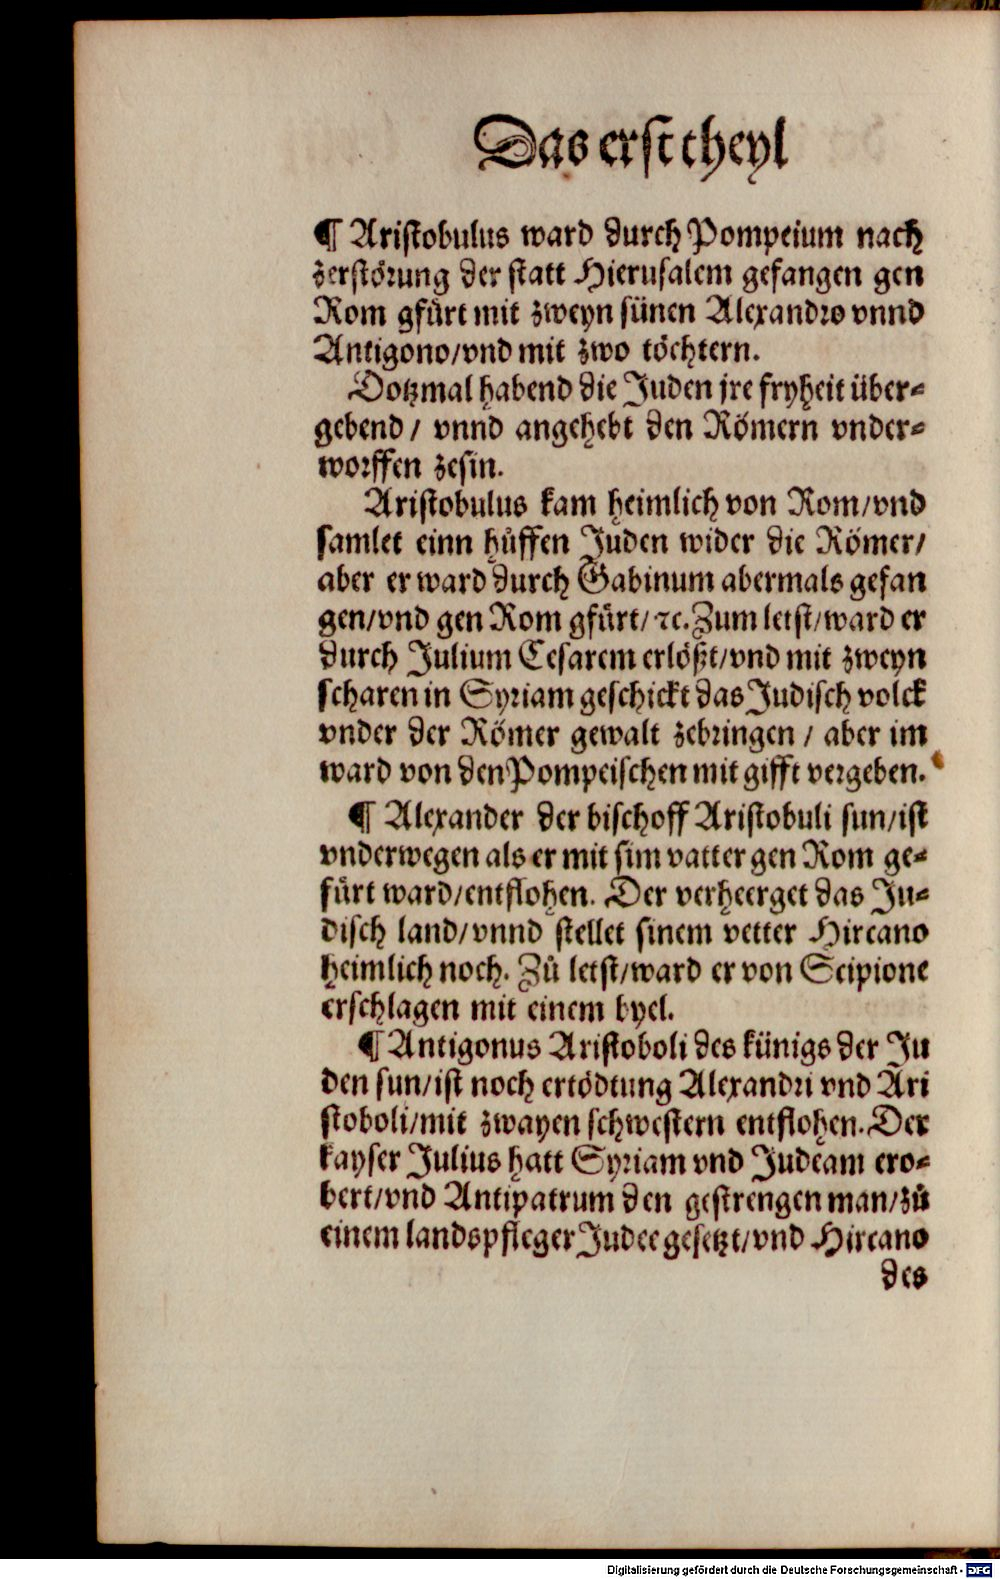 Das erst theyl
¶ Aristobulus ward durch Pompeium nach
zerstörung der statt Hierusalem gefangen gen
Rom gfůrt mit zweyn sünen Alexandro vnnd
Antigono/vnd mit zwo töchtern.
Dotzmal habend die Juden jre fryheit über⸗
gebend/ vnnd angehebt den Römern vnder⸗
worffen zesin.
Aristobulus kam heimlich von Rom/vnd
samlet einn hůffen Juden wider die Römer/
aber er ward durch Gabinum abermals gefan
gen/vnd gen Rom gfürt/ ⁊c. Zum letst/ward er
durch Julium Cesarem erlößt/vnd mit zweyn
scharen in Syriam geschickt das Judisch volck
vnder der Römer gewalt zebringen / aber im
ward von den Pompeischen mit gifft vergeben.
¶ Alexander der bischoff Aristobuli sun/ist
vnderwegen als er mit sim vatter gen Rom ge⸗
fürt ward/entflohen. Der verheerget das Ju⸗
disch land/vnnd stellet sinem vetter Hircano
heimlich noch. Zů letst/ward er von Scipione
erschlagen mit einem byel.
¶ Antigonus Aristoboli des künigs der Ju
den sun/ist noch ertödtung Alexandri vnd Ari
stoboli/mit zwayen schwestern entflohen. Der
kayser Julius hatt Syriam vnd Judeam ero⸗
bert/vnd Antipatrum den gestrengen man/zů
einem landspfleger Judee gesetzt/vnd Hircano
des
Digitalisierung gefördert durch die Deutsche Forschungsgemeinschaft - DFG